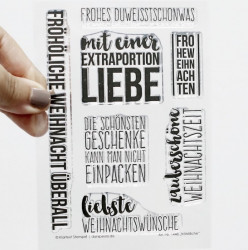 FRÖHÖLICHE WEIHNACHT ÜBERALL
FROHES DUWEISSTSCHONWAS
mit einer
EXTRAPORTION
LIEBE
FRÖ
HEW
EIHN
ACH
TEN
DIE SCHÖNSTEN
GESCHENKE
KANN MAN NICHT
EINPACKEN
zauberschöne
WEIHNACHTSZEIT
liebste
WEIHNACHTSWÜNSCHE